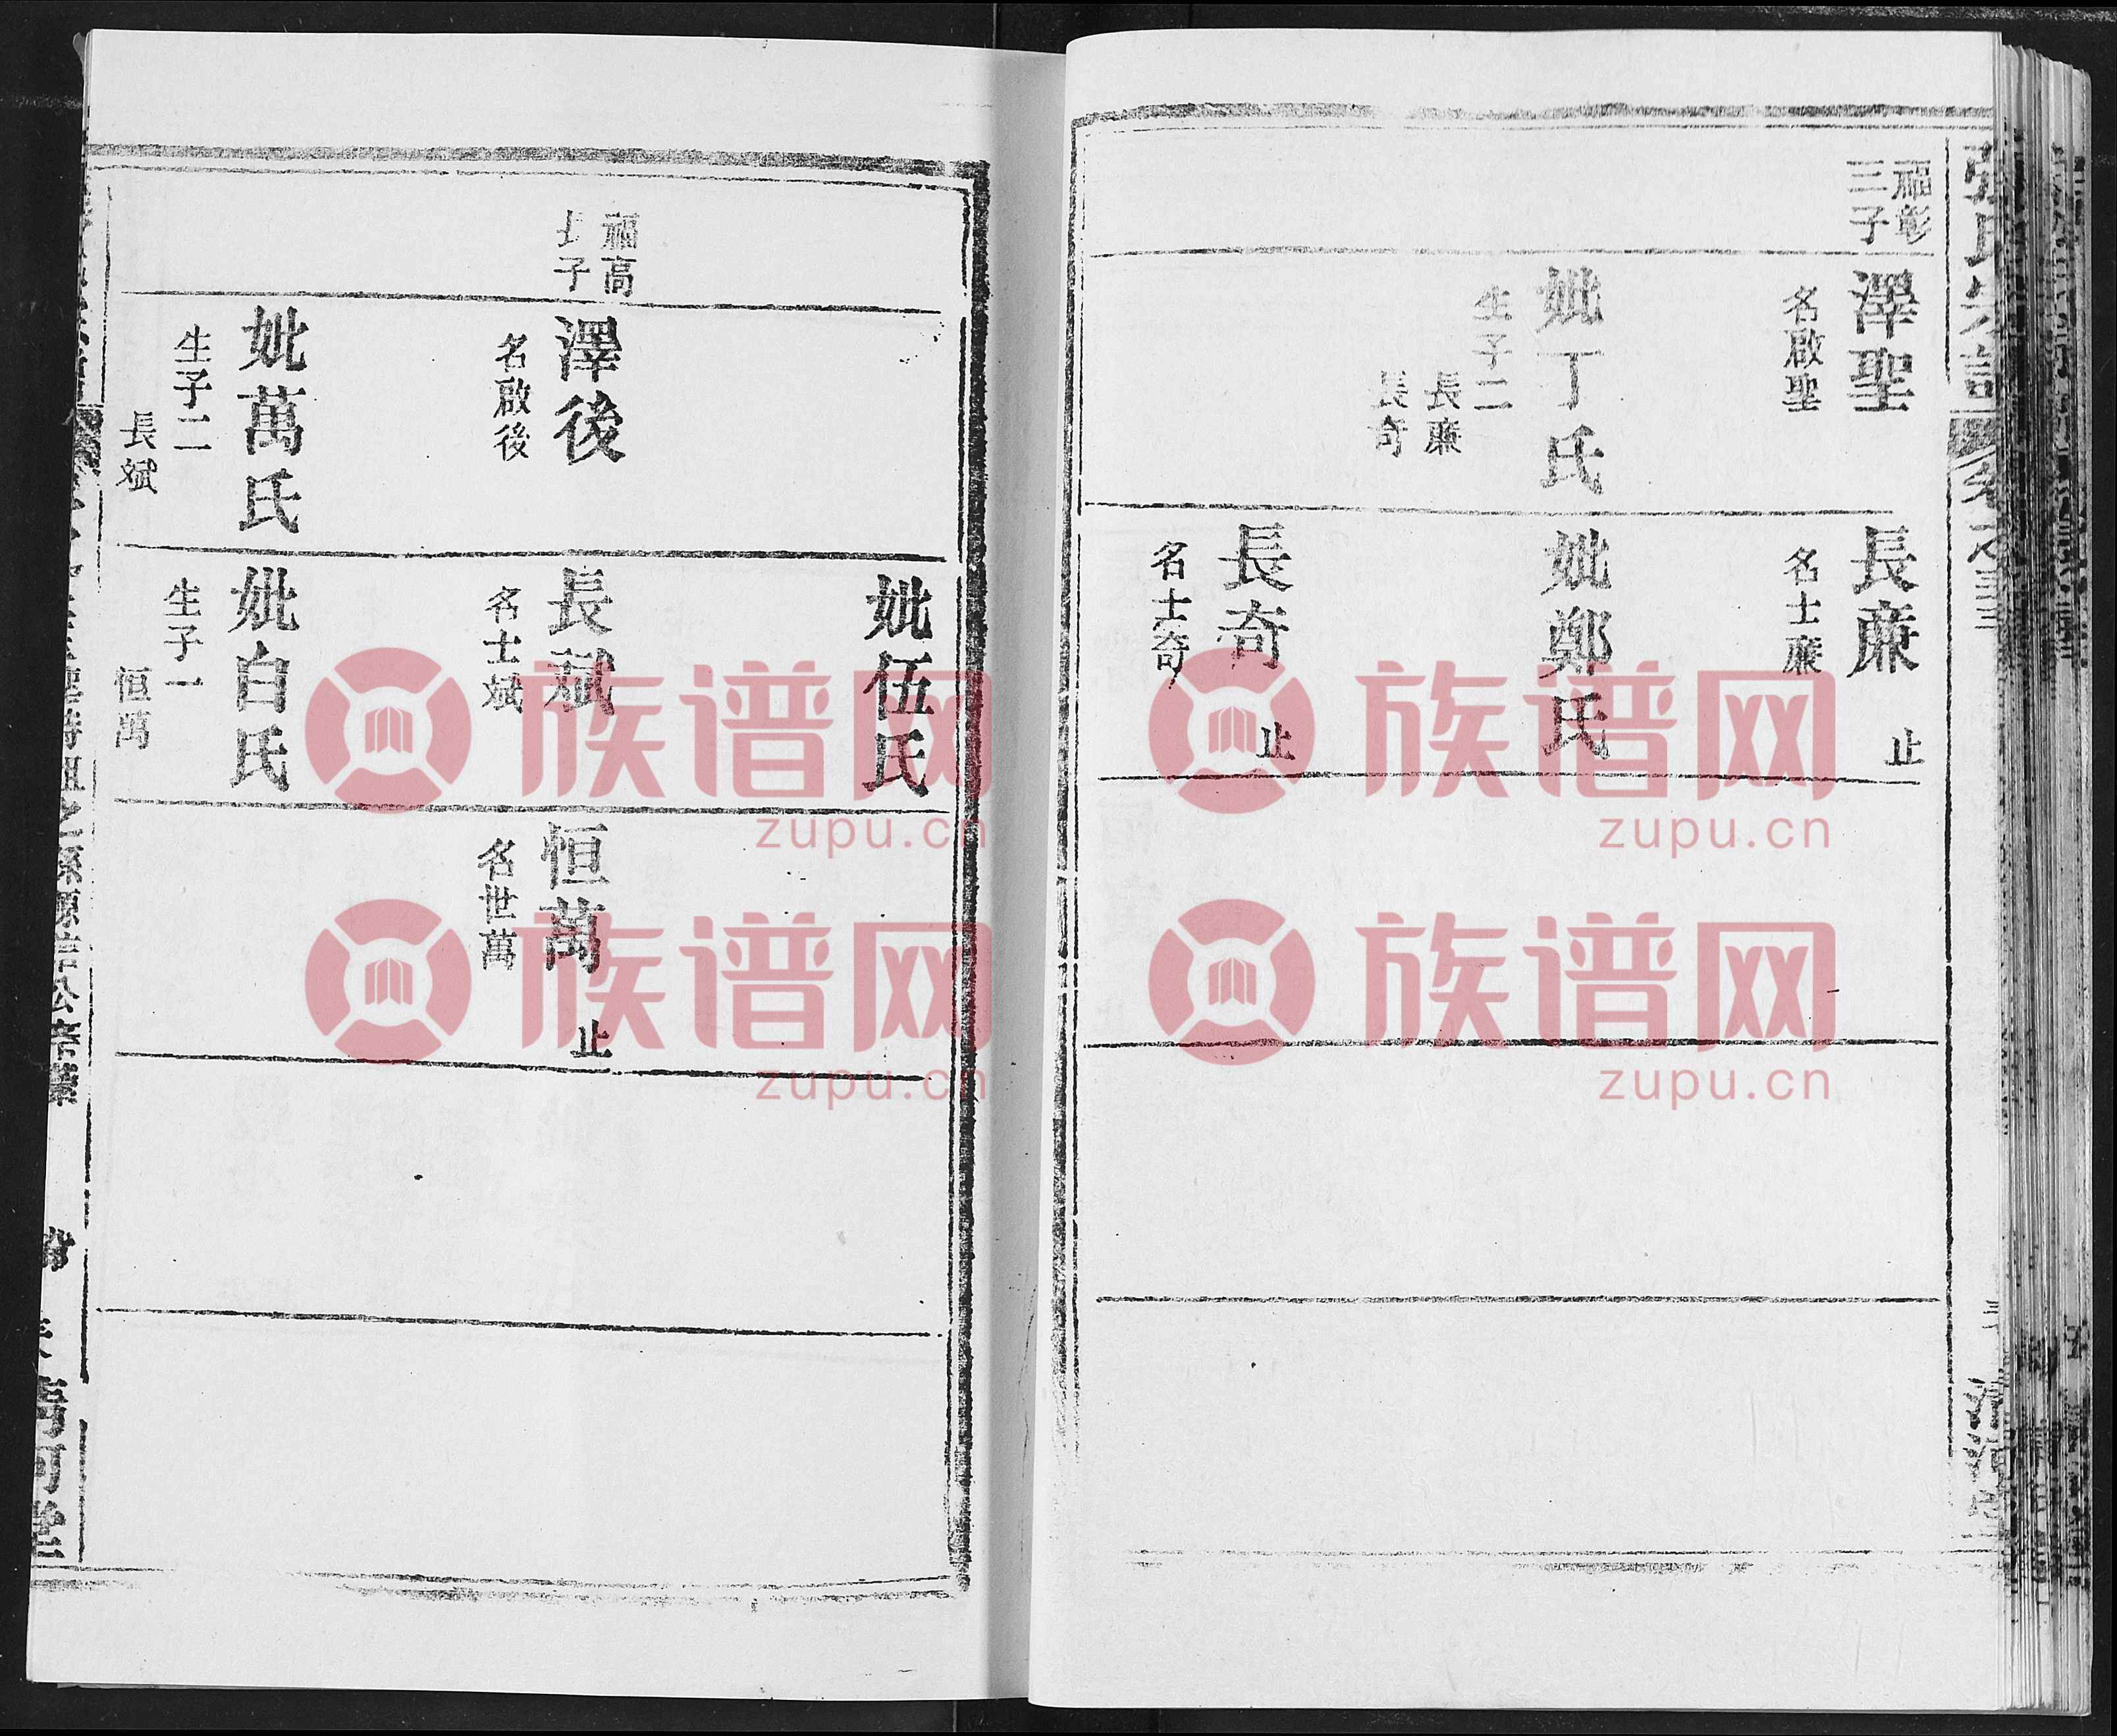 張氏宗譜
卷之三
福彰
三子
澤聖
名啟聖
妣丁氏
生子二
長廉
長奇
長廉
名士廉
止
妣鄭氏
長奇
名士奇
止
妣伍氏
福高
長子
澤後
名啟後
妣萬氏
生子二
長斌
長斌
名士斌
妣白氏
生子一
恒萬
恒萬
名世萬
止
清河堂
族谱网
zupu.cn
族谱网
zupu.cn
族谱网
zupu.cn
族谱网
zupu.cn